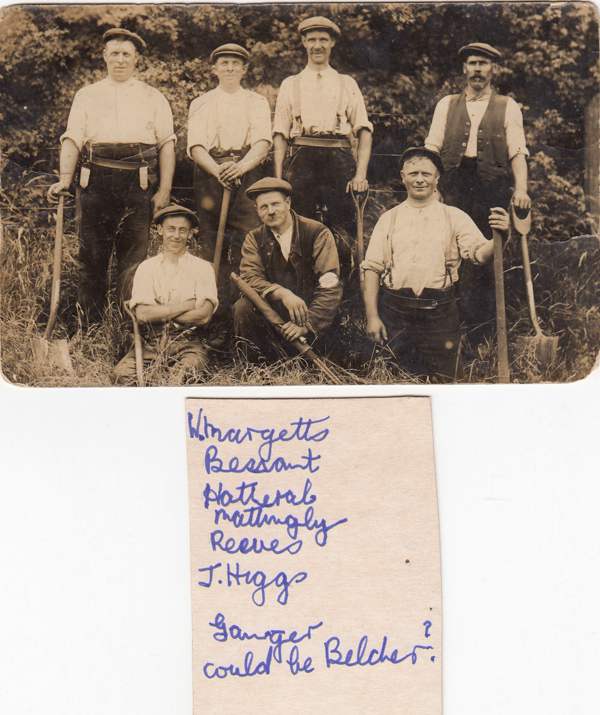 W. Margetts
Bessant
Hatheral
Mattingly
Reeves
J. Higgs
Ganger
could be Belcher?